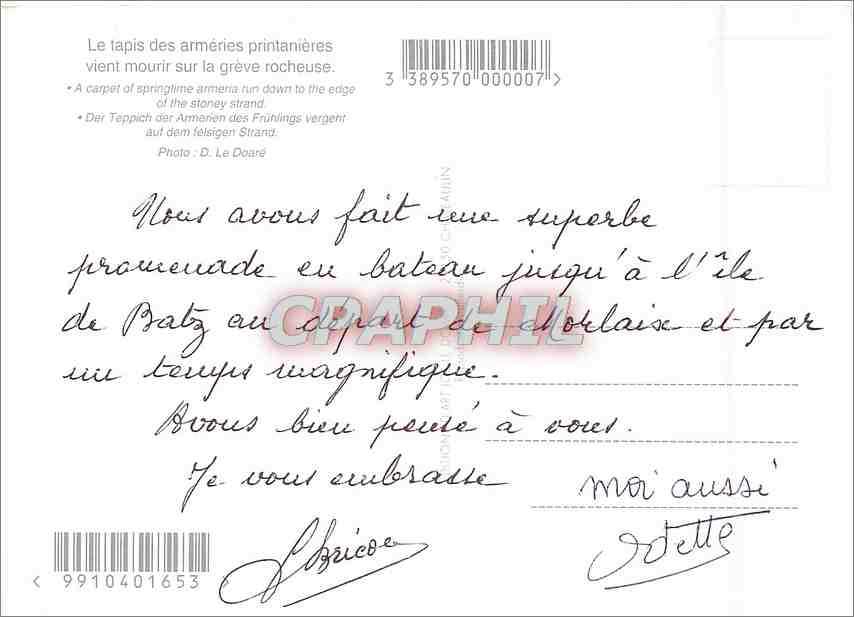 Le tapis des arméries printanières
vient mourir sur la grève rocheuse.
• A carpet of springtime armeria run down to the edge
of the stoney strand.
• Der Teppich der Armerien des Frühlings vergeht
auf dem felsigen Strand.
Photo : D. Le Doaré
3 389570 000007 >
Nous avons fait une superbe
promenade en bateau jusqu'à l'île
de Batz au départ de Morlaix et par
un temps magnifique.
Avons bien pensé à vous.
Je vous embrasse
moi aussi
Odette
CPAPHIL
< 9910401653 >